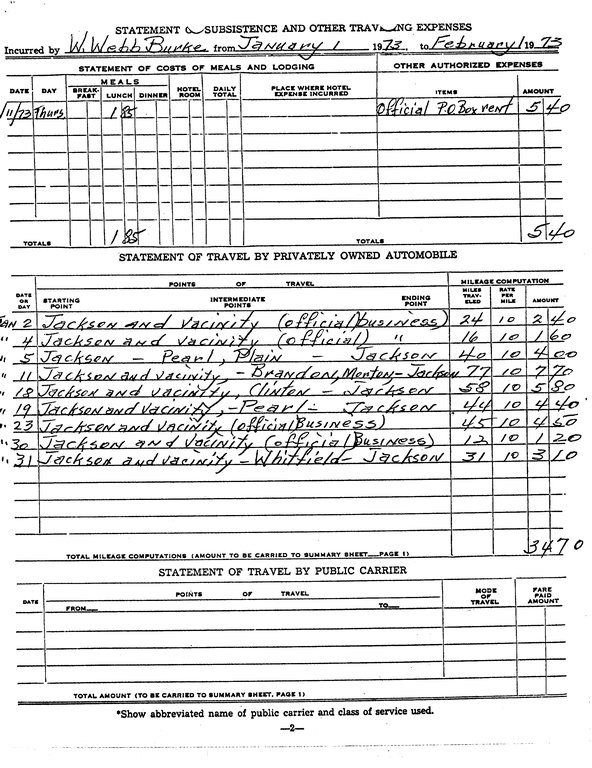 STATEMENT SUBSISTENCE AND OTHER TRAVELING EXPENSES
Incurred by W. Webb Burke from January 1 1973 to February 1 1973
STATEMENT OF COSTS OF MEALS AND LODGING OTHER AUTHORIZED EXPENSES
DATE DAY MEALS BREAK-FAST LUNCH DINNER HOTEL ROOM DAILY TOTAL PLACE WHERE HOTEL EXPENSE INCURRED ITEMS AMOUNT
1/11/73 Thurs 1 85 Official P.O. Box rent 5 40
TOTALS 1 85 TOTALS 5 40
STATEMENT OF TRAVEL BY PRIVATELY OWNED AUTOMOBILE
POINTS OF TRAVEL MILEAGE COMPUTATION
DATE OR DAY STARTING POINT INTERMEDIATE POINTS ENDING POINT MILES TRAV-ELED RATE PER MILE AMOUNT
JAN 2 Jackson and vacinity (official business) 24 10 2 40
" 4 Jackson and vacinity (official) " 16 10 1 60
" 5 Jackson - Pearl, Plain - Jackson 40 10 4 00
" 11 Jackson and vacinity, - Brandon, Monton - Jackson 77 10 7 70
" 18 Jackson and vacinity, Clinton - Jackson 58 10 5 80
" 19 Jackson and vacinity, - Pearl - Jackson 44 10 4 40
" 23 Jackson and vacinity (official Business) 45 10 4 50
" 30 Jackson and vacinity (official Business) 12 10 1 20
" 31 Jackson and vacinity - Whitfield - Jackson 31 10 3 10
TOTAL MILEAGE COMPUTATIONS (AMOUNT TO BE CARRIED TO SUMMARY SHEET__PAGE 1) 34 70
STATEMENT OF TRAVEL BY PUBLIC CARRIER
DATE POINTS OF TRAVEL MODE OF TRAVEL FARE PAID AMOUNT
FROM__ TO__
TOTAL AMOUNT (TO BE CARRIED TO SUMMARY SHEET, PAGE 1)
*Show abbreviated name of public carrier and class of service used.
—2—